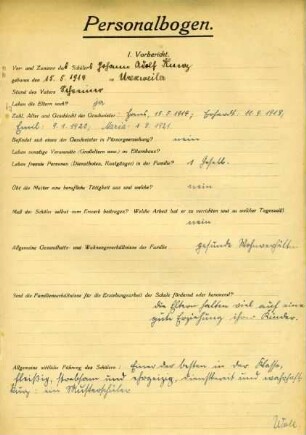 Personalbogen.
I. Vorbericht.
Vor- und Zuname des Schülers Johann Adolf
geboren den 15. 5. 1914 in Urexweiler
Stand des Vaters Schreiner
Leben die Eltern noch? ja
Zahl, Alter und Geschlecht der Geschwister:
Emil: 9. 1. 1920, Maria: 1. 9. 1921
Befindet sich eines der Geschwister in Fürsorgeerziehung? nein
Leben sonstige Verwandte (Großeltern usw.) im Elternhaus?
Leben fremde Personen (Dienstboten, Kostgänger) in der Familie? 1 Geselle.
Übt die Mutter eine berufliche Tätigkeit aus und welche?
nein
Muß der Schüler selbst zum Erwerb beitragen? Welche Arbeit hat er zu verrichten und zu welcher Tageszeit?
nein
Allgemeine Gesundheits- und Wohnungsverhältnisse der Familie: gesunde Wohnverhält.
Sind die Familienverhältnisse für die Erziehungsarbeit der Schule fördernd oder hemmend?
die Eltern halten viel auf eine
gute Erziehung ihrer Kinder.
Allgemeine sittliche Führung des Schülers: Einer der besten in der Klasse,
fleißig, strebsam und ehrgeizig, dienstbereit und wahrhaft
ein Musterschüler